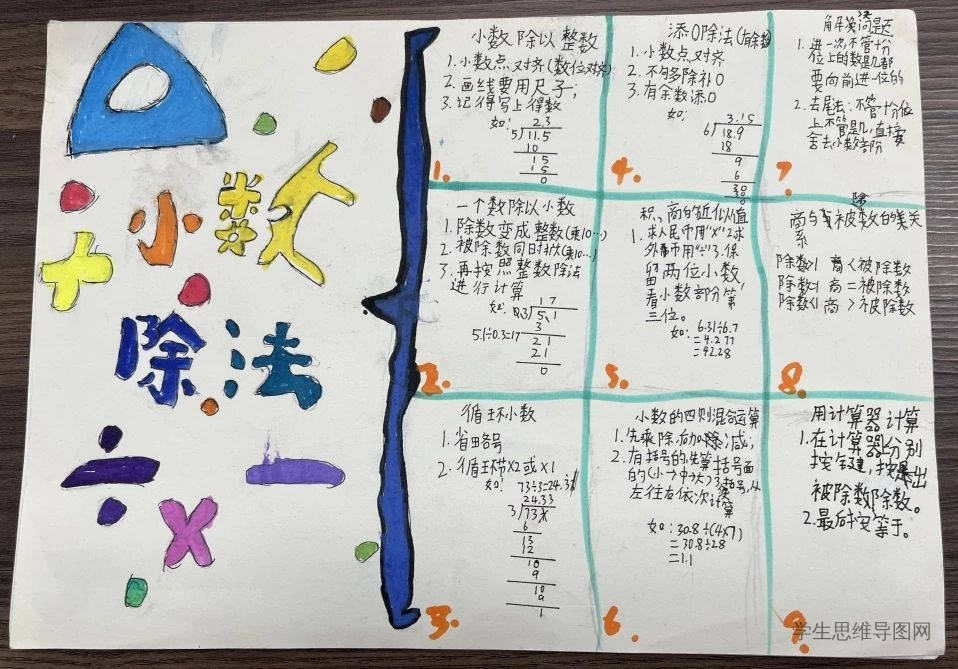 小数
除法
小数除以整数
1.小数点对齐(数位对齐)
2.画线要用尺子;
3.记得写上得数
如:
2.3
5 11.5
10
15
15
0
1.
一个数除以小数
1.除数变成整数(乘10…)
2.被除数同时扩大(乘10…)
3.再按照整数除法
进行计算
如:
17
0.3 5.1
5.1÷0.3=17
3
21
21
0
2.
循环小数
1.省略号
2.循环节X2或X1
如: 73÷3=24.33
24.33
3 73
6
13
12
10
9
10
9
1
3.
添0除法(有余数)
1.小数点对齐
2.不够除补0
3.有余数添0
如:
3.15
6 18.9
18
9
6
30
4.
积、商的近似值
1.求人民币用"X"2.求
外币用"÷"3.保
留两位小数
看小数部分第
三位。
如: 6.31÷6.7
5.
小数的四则混合运算
1.先乘除后加减;
2.有括号的先算括号里面
的(小→中→大)3.括号从
左往右依次计算
如:30.8÷(4X7)
=30.8÷28
=1.1
6.
解决问题
1.进一法,不管十分
位上的数是几都
要向前进一位的
2.去尾法:不管十分位
上不管是几,直接
舍去小数部份
7.
商与被除数的关
系
除数>1 商<被除数
除数=1 商=被除数
除数<1 商>被除数
8.
用计算器计算
1.在计算器上分别
按键,按出
被除数除数。
2.最后按等于。
9.
学生思维导图网